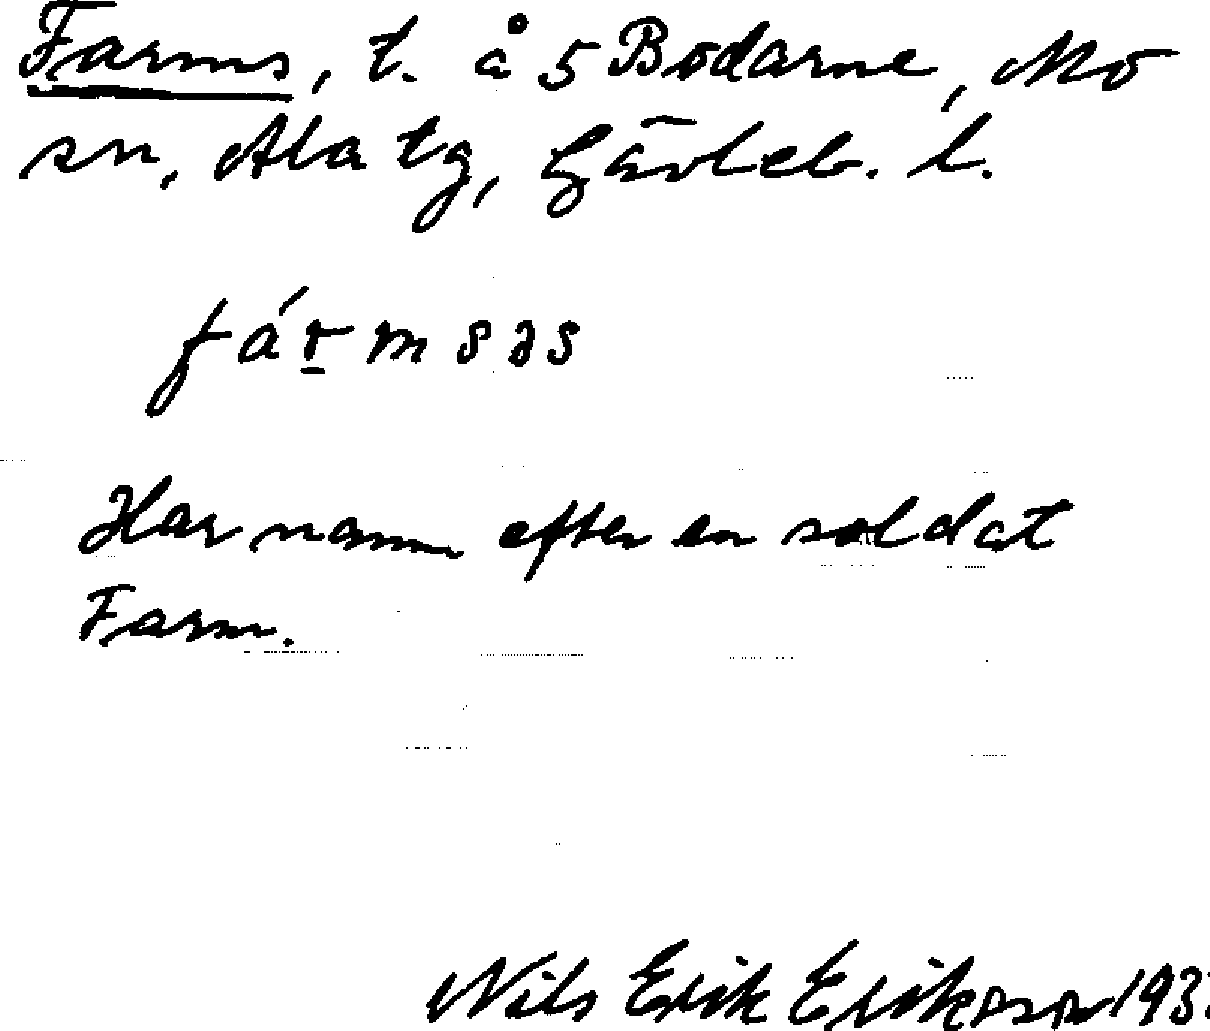 Farms, t. å 5 Bodarne, Mo
sn, Ala tg, Gävleb. l.
fá r̲ m s ə s
Har namn efter en soldat
Farm.
Nils Erik Erikson 193